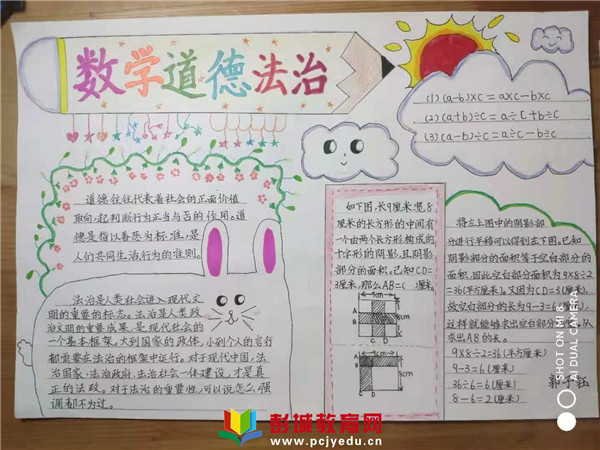 数学道德法治
(1)(a-b)×c=a×c-b×c
(2)(a+b)÷c=a÷c+b÷c
(3)(a-b)÷c=a÷c-b÷c
道德往往代表着社会的正面价值
取向,起判断行为正当与否的作用。道
德是指以善恶为标准,是
人们共同生活行为的准则。
法治是人类社会进入现代文
明的重要的标志。法治是人类政
治文明的重要成果,是现代社会的
一个基本框架。大到国家的政体,小到个人的言行
都需要在法治的框架中运行。对于现代中国,法
治国家、法治政府、法治社会一体建设,才是真
正的法政。对于法治的重要性,可以说怎么强
调都不为过。
如下图,长9厘米,宽8
厘米的长方形的中间有
一个由两个长方形构成的
十字形的阴影,且阴影
部分的面积。已知CD=
3厘米,那么AB=( )厘米。
9cm
A
B
C D
8cm
A
B
C D
将左上图中的阴影部
分进行平移可以得到右下图。已知
阴影部分的面积等于空白部分的
面积,因此空白部分面积为9×8÷2
=36(平方厘米)。又因为CD=3(厘米),
故空白部分的长为9-3=6(厘米)
这样就能够求出空白部分
求出AB的长。
9×8÷2=36(平方厘米)
9-3=6(厘米)
36÷6=6(厘米)
8-6=2(厘米)
郭子钰
MI 8
AI DUAL CAMERA
彭城教育网
www.pcjyedu.cn